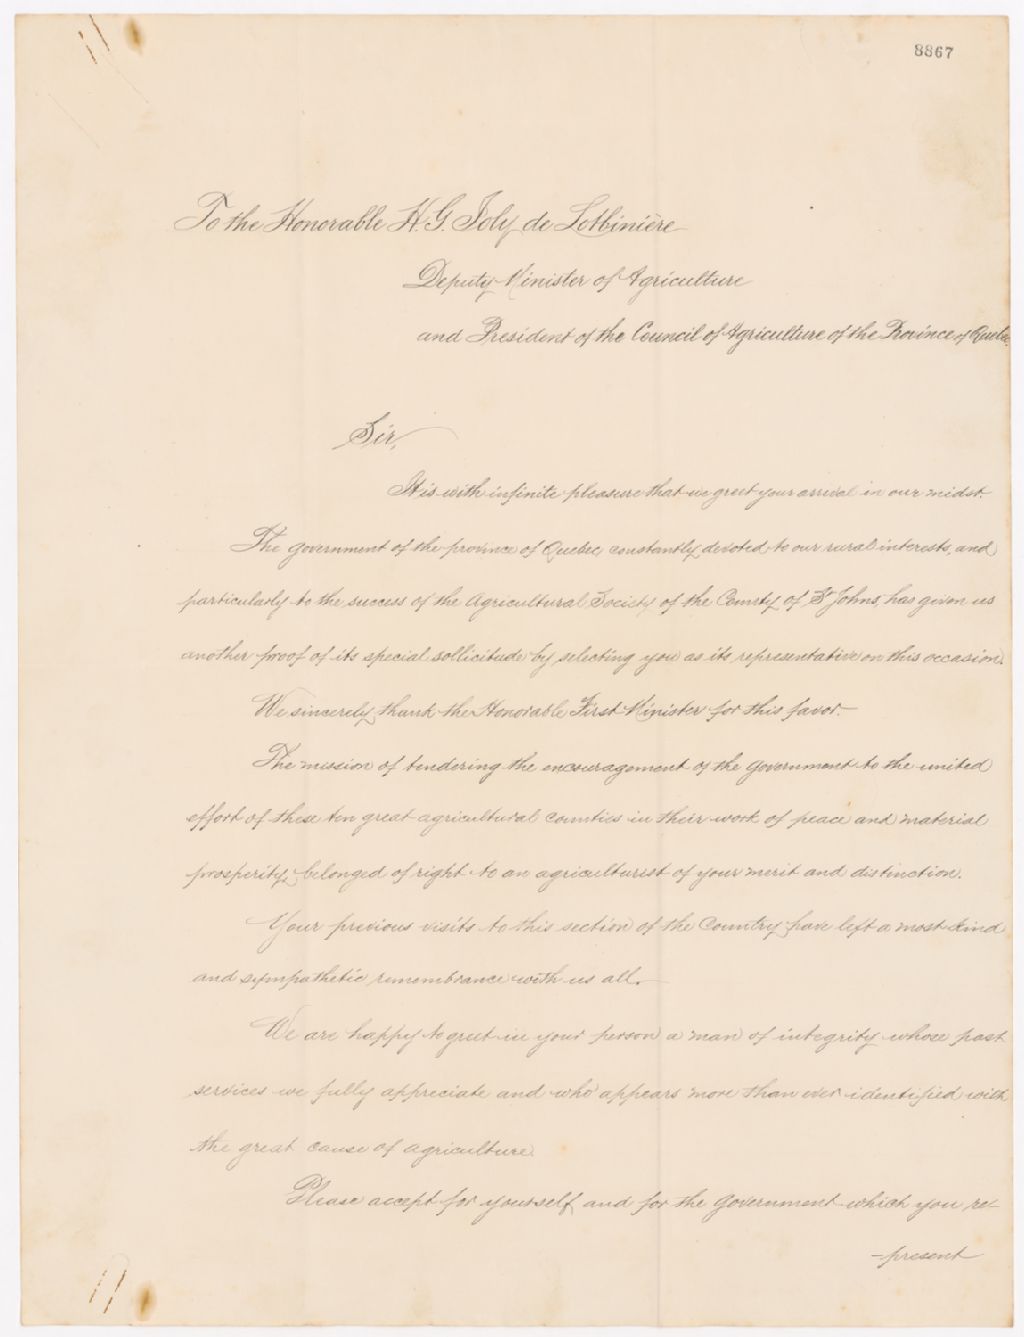 8867
To the Honorable H. G. Joly de Lotbinière
Deputy Minister of Agriculture
and President of the Council of Agriculture of the Province of Quebec.
Sir,
It is with infinite pleasure that we greet your arrival in our midst.
The government of the province of Quebec constantly devoted to our rural interests, and
particularly to the success of the Agricultural Society of the County of St Johns, has given us
another proof of its special sollicitude by selecting you as its representative on this occasion.
We sincerely thank the Honorable First Minister for this favor.
The mission of tendering the encouragement of the government to the united
effort of these ten great agricultural counties in their work of peace and material
prosperity, belonged of right to an agriculturist of your merit and distinction.
Your previous visits to this section of the Country have left a most kind
and sympathetic remembrance with us all.
We are happy to greet in your person a man of integrity whose past
services we fully appreciate and who appears more than ever identified with
the great cause of agriculture.
Please accept for yourself and for the government which you re-
-present